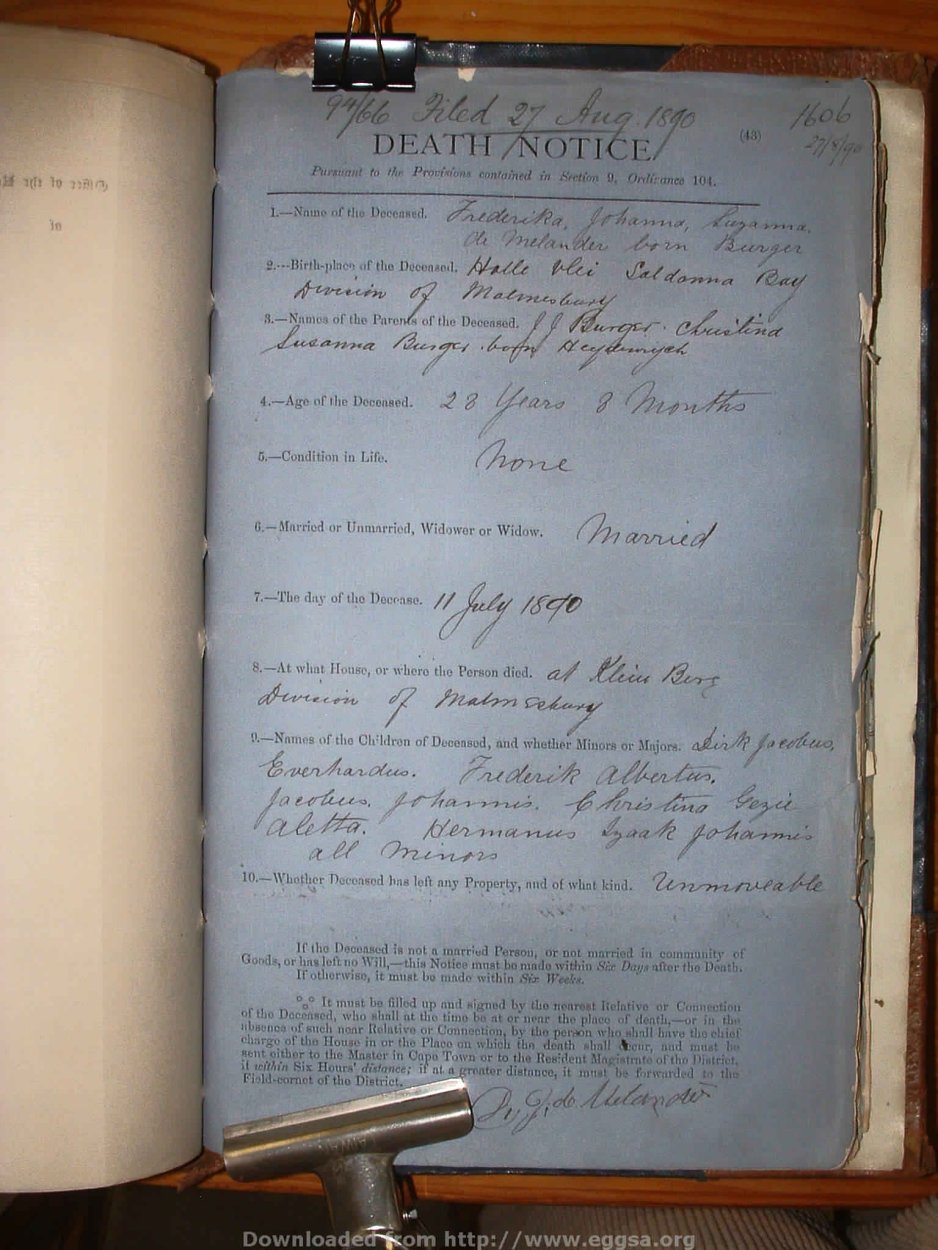 94/66 Filed 27 Aug. 1890
1606
27/8/90
(43)
DEATH NOTICE
Pursuant to the Provisions contained in Section 9, Ordinance 104.
1.—Name of the Deceased. Frederika, Johanna, Suzanna.
de Melander born Burger
2.—Birth-place of the Deceased. Holle vlei Saldanna Bay
Division of Malmesbury
3.—Names of the Parents of the Deceased. J J Burger. Christina
Susanna Burger born Heydenrych
4.—Age of the Deceased. 28 Years 8 Months
5.—Condition in Life. None
6.—Married or Unmarried, Widower or Widow. Married
7.—The day of the Decease. 11 July 1890
8.—At what House, or where the Person died. at Klein Berg
Division of Malmesbury
9.—Names of the Children of Deceased, and whether Minors or Majors. Dirk Jacobus,
Everhardus. Frederik Albertus.
Jacobus Johannis. Christina Gezie
Aletta. Hermanus Izaak Johannis
all Minors
10.—Whether Deceased has left any Property, and of what kind. Unmoveable
If the Deceased is not a married Person, or not married in community of
Goods, or has left no Will,—this Notice must be made within Six Days after the Death.
If otherwise, it must be made within Six Weeks.
It must be filled up and signed by the nearest Relative or Connection
of the Deceased, who shall at the time be at or near the place of death,—or in the
absence of such near Relative or Connection, by the person who shall have the chief
charge of the House in or the Place on which the death shall occur, and must be
sent either to the Master in Cape Town or to the Resident Magistrate of the District,
if within Six Hours' distance; if at a greater distance, it must be forwarded to the
Field-cornet of the District.
J. de Melander
Downloaded from http://www.eggsa.org